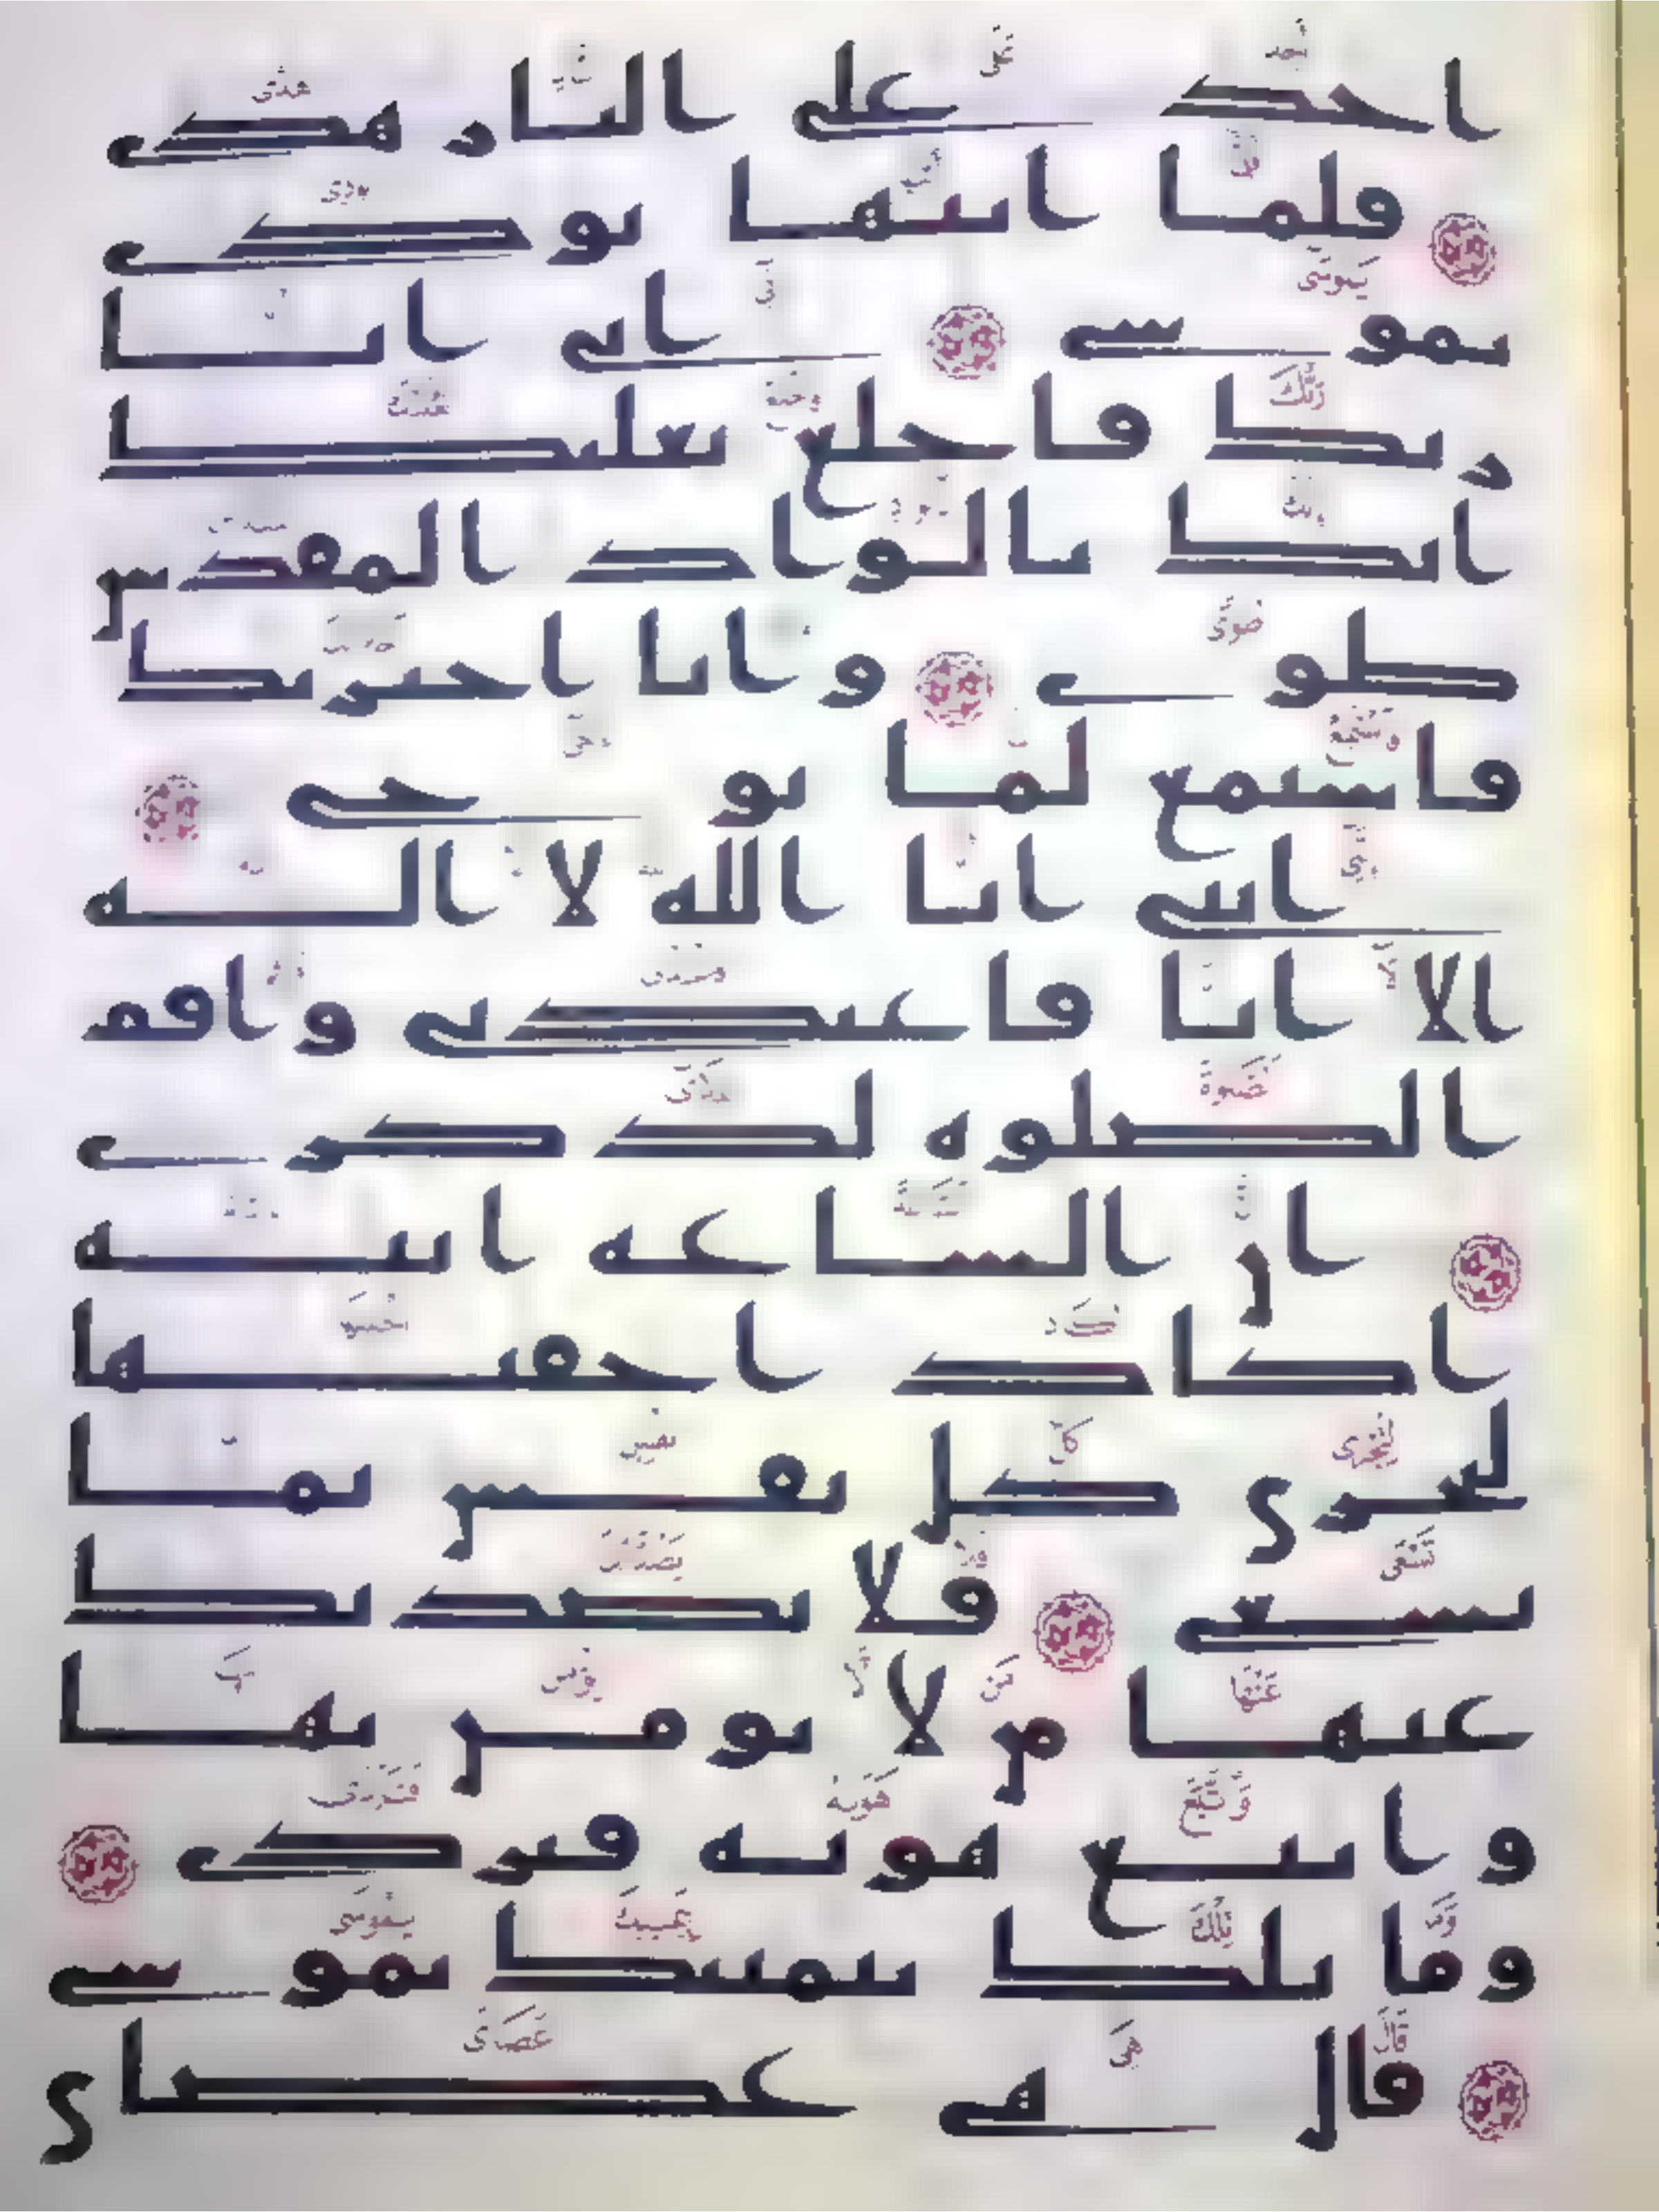 اجد على النار هدى
فلما اتيها نودى
يموسى انى انا
ربك فاخلع نعليك
انك بالواد المقدس
طوى وانا اخترتك
فاستمع لما يوحى
اننى انا الله لا اله
الا انا فاعبدنى واقم
الصلوة لذكرى
ان الساعة اتية
اكاد اخفيها
لتجزى كل نفس بما
تسعى فلا يصدنك
عنها من لا يومن بها
واتبع هويه فتردى
وما تلك بيمينك يموسى
قال هى عصاى